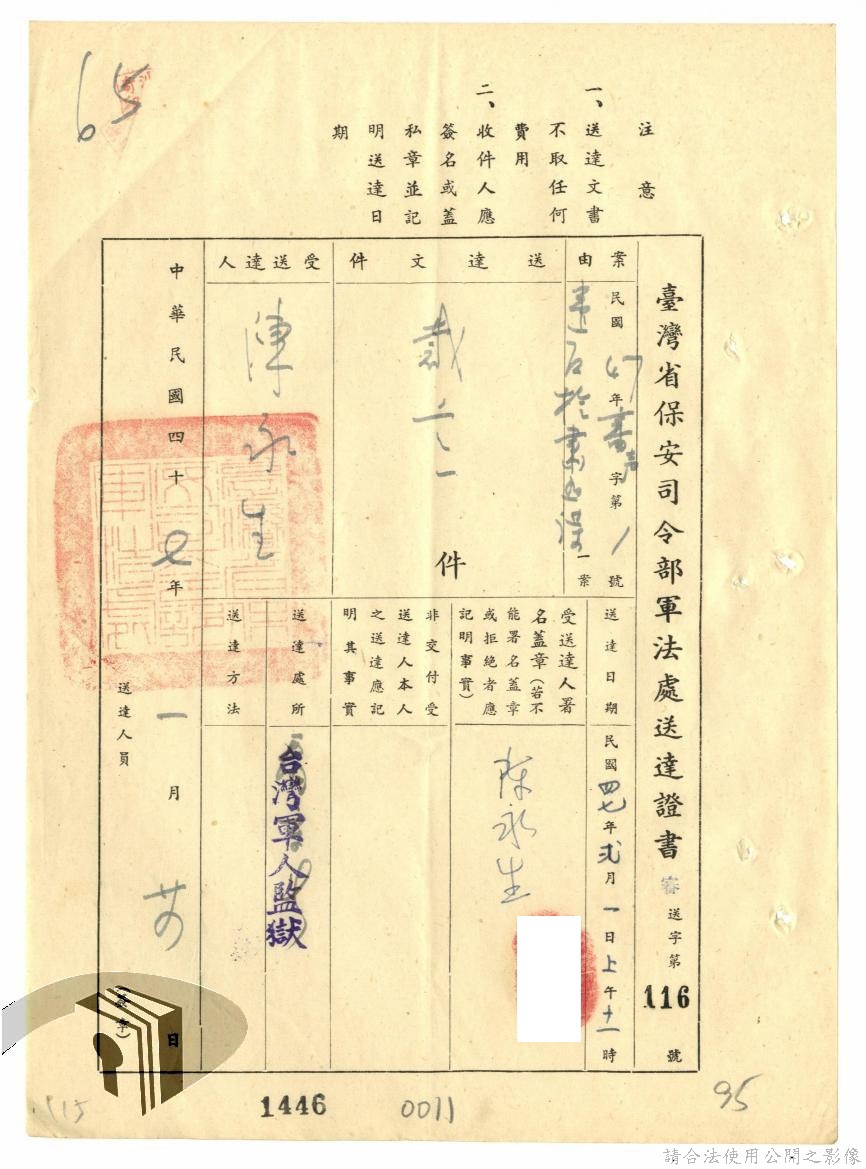 65
注意
一、送達文書
不取任何
費用
二、收件人應
簽名或蓋
私章並記
明送達日
期
臺灣省保安司令部軍法處送達證書
審送字第116號
案由
民國47年審字第1號
一案
送達日期
民國四七年弍月一日上午十一時
送達文件
裁定
件
受送達人署
名蓋章(若不
能署名蓋章
或拒絕者應
記明事實)
陳永生
非交付受
送達人本人
之送達應記
明其事實
受送達人
陳永生
送達處所
台灣軍人監獄
送達方法
中華民國四十七年一月廿日
送達人員
(簽章)
115
1446
0011
95
請合法使用公開之影像